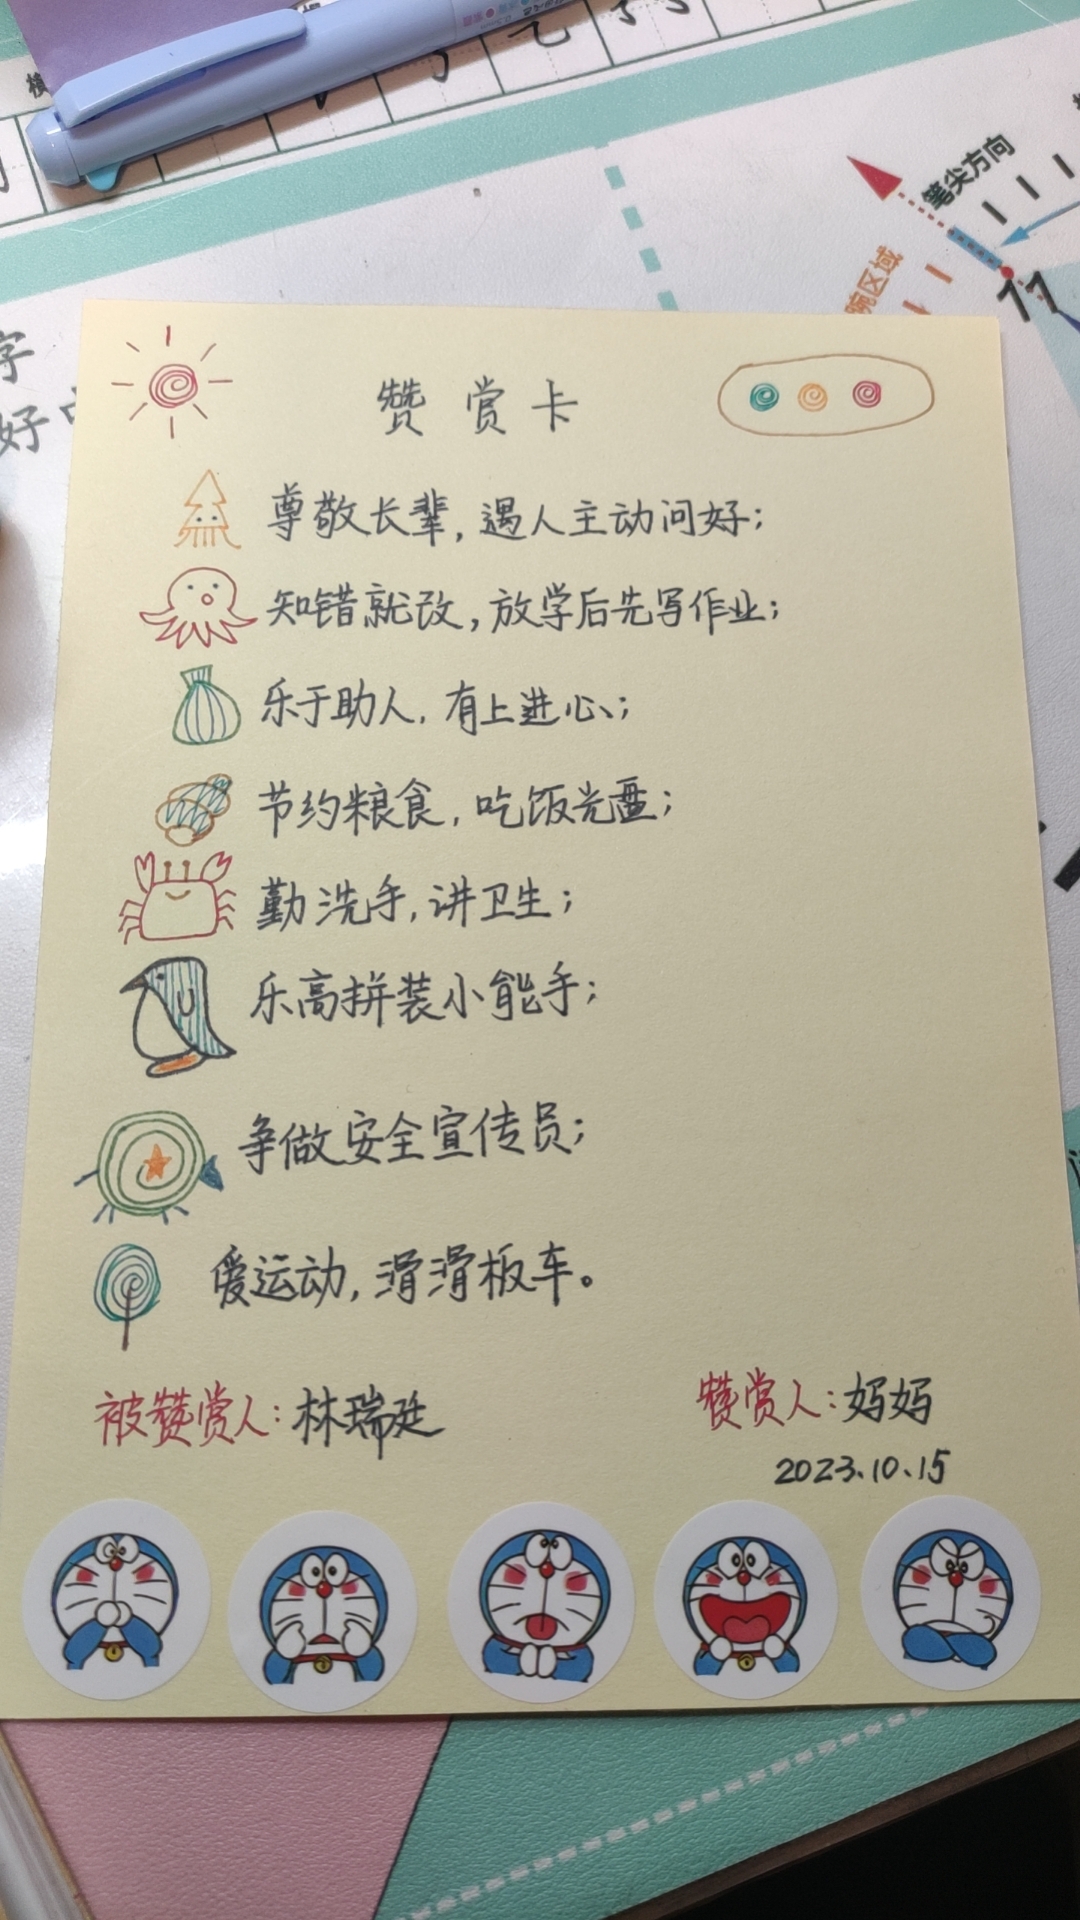 笔尖方向
腕区域
字
好
赞赏卡
尊敬长辈，遇人主动问好；
知错就改，放学后先写作业；
乐于助人，有上进心；
节约粮食，吃饭光盘；
勤洗手，讲卫生；
乐高拼装小能手；
争做安全宣传员；
爱运动，滑滑板车。
被赞赏人：林瑞廷
赞赏人：妈妈
2023.10.15